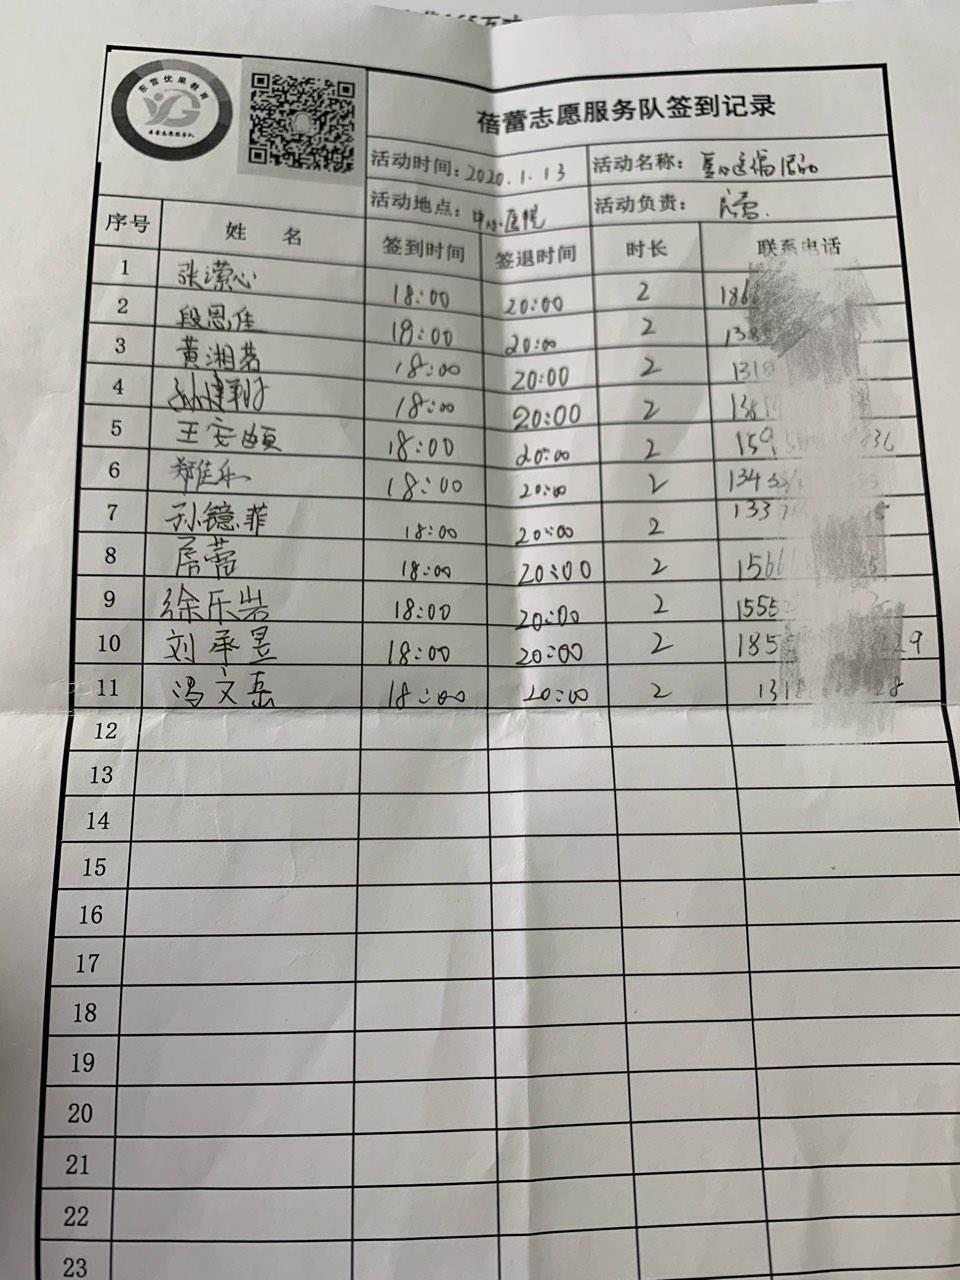 东营优果教育
YG
蓓蕾志愿服务队
蓓蕾志愿服务队签到记录
活动时间：2020.1.13 活动名称：
活动地点：中心医院 活动负责：
序号 姓 名 签到时间 签退时间 时长 联系电话
1 张潆心 18:00 20:00 2 186
2 段恩佳 18:00 20:00 2 138
3 黄湘茗 18:00 20:00 2 131
4 18:00 20:00 2 138
5 王安頔 18:00 20:00 2 159
6 郑佳乐 18:00 20:00 2 134
7 孙镱菲 18:00 20:00 2 133
8 18:00 20:00 2 1566
9 徐乐岩 18:00 20:00 2 1555
10 刘承昱 18:00 20:00 2 185 29
11 冯文岳 18:00 20:00 2 131 28
12
13
14
15
16
17
18
19
20
21
22
23